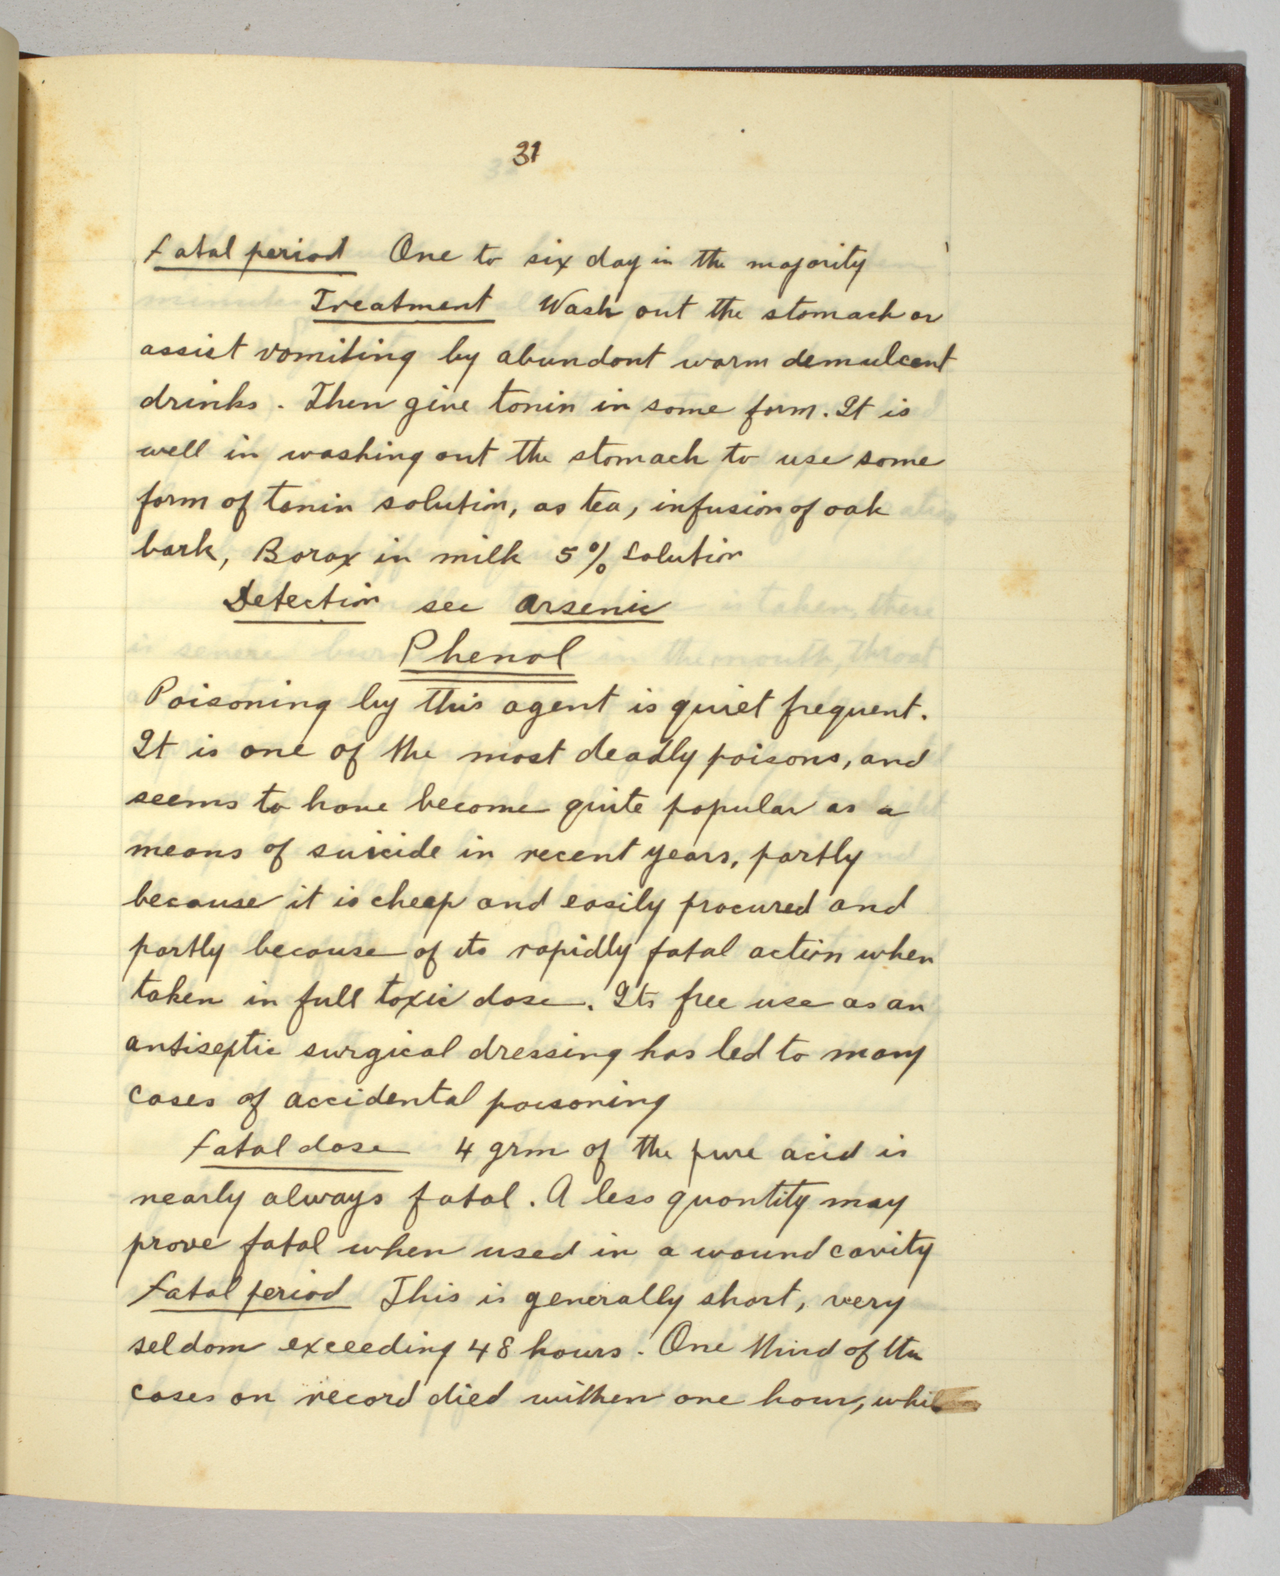 31
Fatal period One to six day in the majority
Treatment Wash out the stomach or
assist vomiting by abundont warm demulcent
drinks. Then give tanin in some form. It is
well in washing out the stomach to use some
form of tanin solution, as tea, infusion of oak
bark, Borax in milk 5% Solution
Detection see arsenic
Phenol
Poisoning by this agent is quiet frequent.
It is one of the most deadly poisons, and
seems to have become quite popular as a
means of suicide in recent years, partly
because it is cheap and easily procured and
partly because of its rapidly fatal action when
taken in full toxic dose. Its free use as an
antiseptic surgical dressing has led to many
cases of accidental poisoning
Fatal dose 4 grm of the pure acid is
nearly always fatal. A less quantity may
prove fatal when used in a wound cavity
Fatal period This is generally short, very
seldom exceeding 48 hours. One third of the
cases on record died withen one hour,